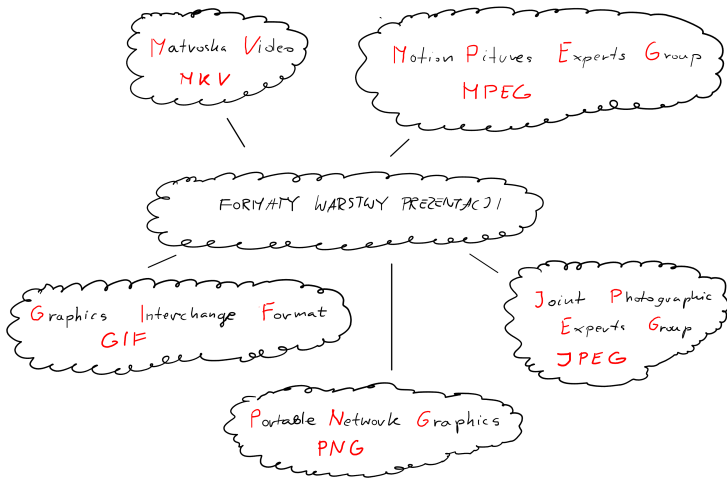 Matroska Video
MKV
Motion Pitures Experts Group
MPEG
FORMATY WARSTWY PREZENTACJI
Graphics Interchange Format
GIF
Joint Photographic
Experts Group
JPEG
Portable Network Graphics
PNG